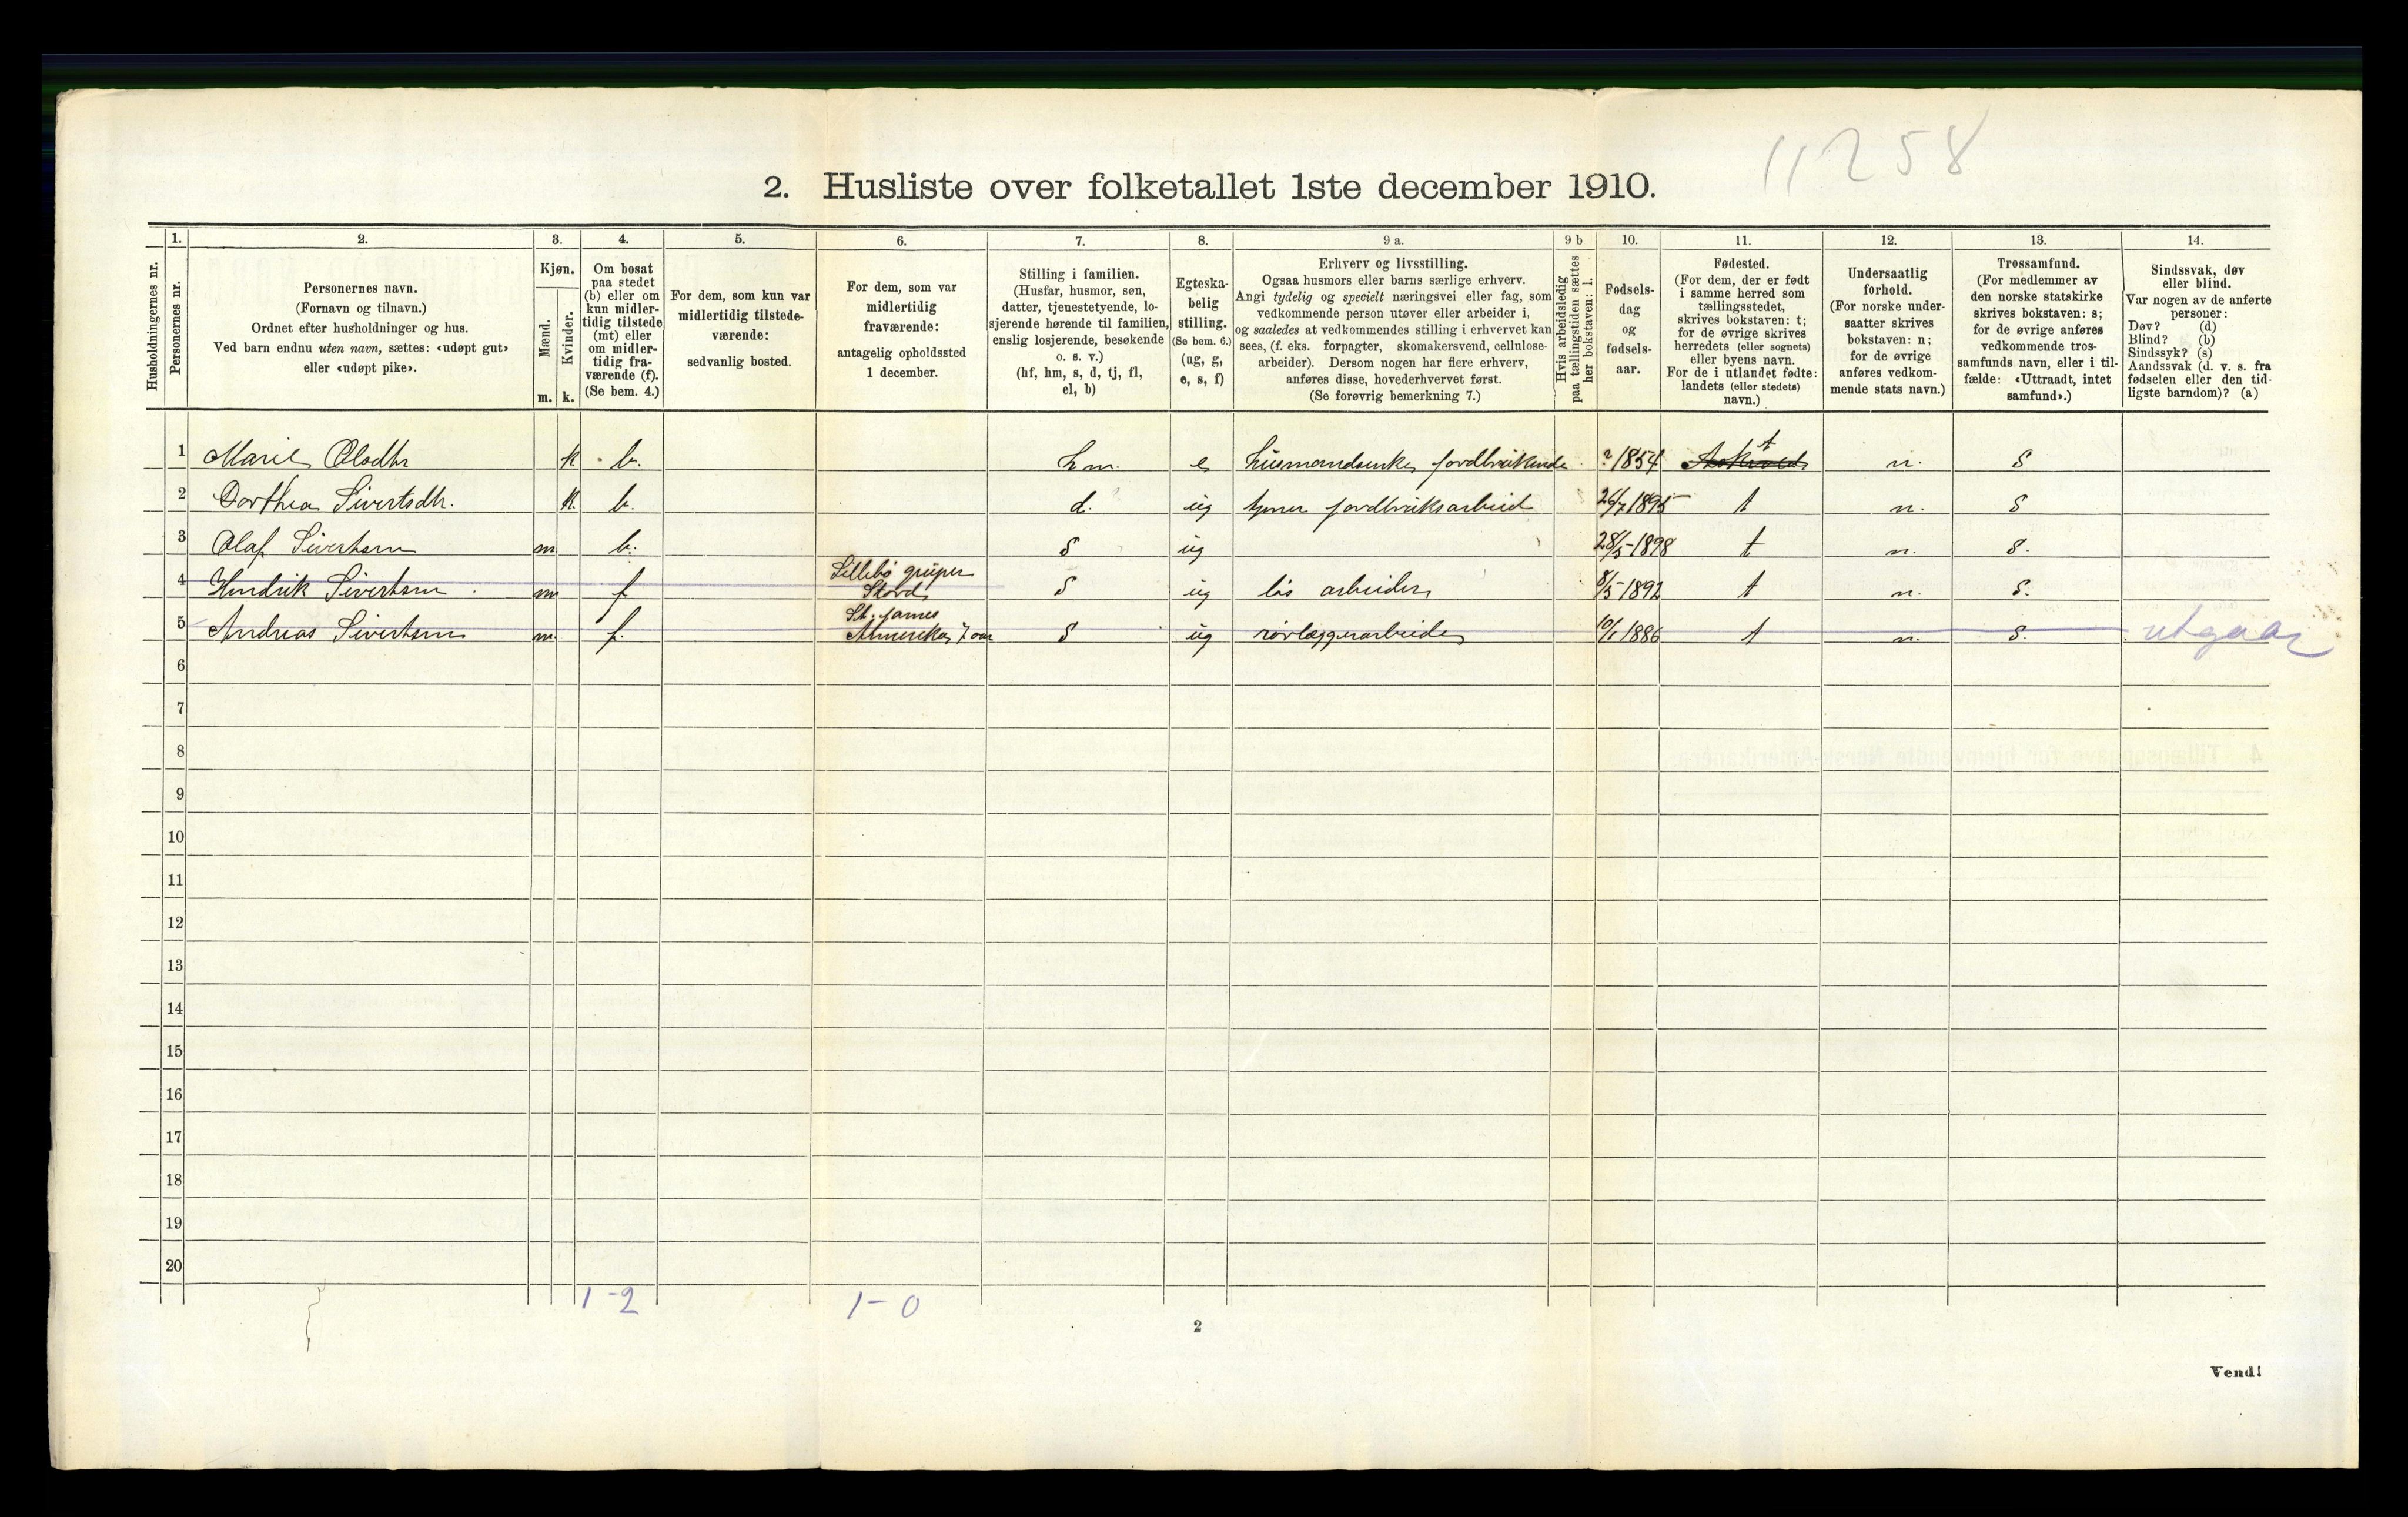 11258
2. Husliste over folketallet 1ste december 1910.
1. 2. 3. 4. 5. 6. 7. 8. 9 a. 9 b 10. 11. 12. 13. 14.
Husholdningernes nr.
Personernes nr.
Personernes navn.
(Fornavn og tilnavn.)
Ordnet efter husholdninger og hus.
Ved barn endnu uten navn, sættes: «udøpt gut»
eller «udøpt pike».
Kjøn.
Mænd.
Kvinder.
m. k.
Om bosat
paa stedet
(b) eller om
kun midler-
tidig tilstede
(mt) eller
om midler-
tidig fra-
værende (f).
(Se bem. 4.)
For dem, som kun var
midlertidig tilstede-
værende:
sedvanlig bosted.
For dem, som var
midlertidig
fraværende:
antagelig opholdssted
1 december.
Stilling i familien.
(Husfar, husmor, søn,
datter, tjenestetyende, lo-
sjerende hørende til familien,
enslig losjerende, besøkende
o. s. v.)
(hf, hm, s, d, tj, fl,
el, b)
Egteska-
belig
stilling.
(Se bem. 6.)
(ug, g,
e, s, f)
Erhverv og livsstilling.
Ogsaa husmors eller barns særlige erhverv.
Angi tydelig og specielt næringsvei eller fag, som
vedkommende person utøver eller arbeider i,
og saaledes at vedkommendes stilling i erhvervet kan
sees, (f. eks. forpagter, skomakersvend, cellulose-
arbeider). Dersom nogen har flere erhverv,
anføres disse, hovederhvervet først.
(Se forøvrig bemerkning 7.)
Hvis arbeidsledig
paa tællingstiden sættes
her bokstaven: l.
Fødsels-
dag
og
fødsels-
aar.
Fødested.
(For dem, der er født
i samme herred som
tællingsstedet,
skrives bokstaven: t;
for de øvrige skrives
herredets (eller sognets)
eller byens navn.
For de i utlandet fødte:
landets (eller stedets)
navn.)
Undersaatlig
forhold.
(For norske under-
saatter skrives
bokstaven: n;
for de øvrige
anføres vedkom-
mende stats navn.)
Trossamfund.
(For medlemmer av
den norske statskirke
skrives bokstaven: s;
for de øvrige anføres
vedkommende tros-
samfunds navn, eller i til-
fælde: «Uttraadt, intet
samfund».)
Sindssvak, døv
eller blind.
Var nogen av de anførte
personer:
Døv? (d)
Blind? (b)
Sindssyk? (s)
Aandssvak (d. v. s. fra
fødselen eller den tid-
ligste barndom)? (a)
1 Marie Olsdtr k b. hm. e husmandsenke, jordbrukende ? 1854 t n. S
2 Dorthea Sivertsdtr. k. b. d. ug jordbruksarbeid 26/7 1895 t n. S
3 Olaf Sivertsen m b. S ug 28/5 1898 t n. S.
Lillebö gruper
4 Hendrik Sivertsen m f Stord S ug lös arbeider 8/5 1892 t n. S.
St. James
5 Andreas Sivertsen m. f. Amerika, 7 aar S ug rörlæggerarbeide 10/1 1886 t n. S. utgaar
6
7
8
9
10
11
12
13
14
15
16
17
18
19
20
1-2 1-0
2
Vend!